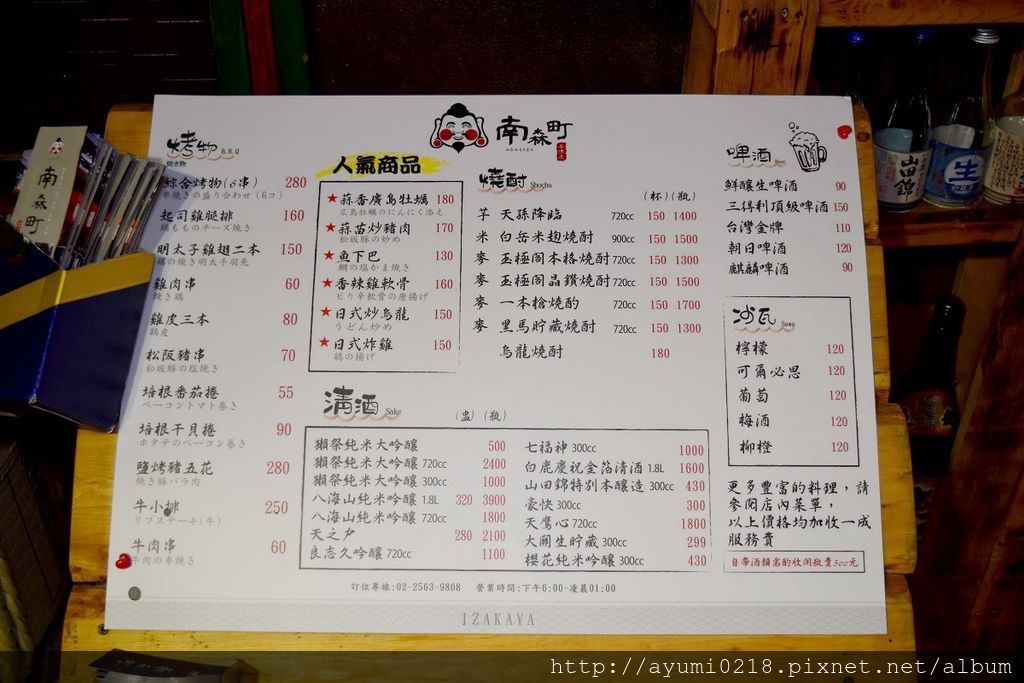 南森町
烤物 B.B.Q
焼き物
綜合烤物(6串) 280
串焼きの盛り合わせ(6コ)
起司雞腿排 160
鶏もものチーズ焼き
明太子雞翅二本 150
鶏の焼き明太手羽先
雞肉串 60
焼き鶏
雞皮三本 80
鶏皮
松阪豬串 70
松坂豚の塩焼き
培根番茄捲 55
ベーコントマト巻き
培根干貝捲 90
ホタテのベーコン巻き
鹽烤豬五花 280
焼き豚バラ肉
牛小排 250
リブステーキ(牛)
牛肉串 60
牛肉の串焼き
人氣商品
★蒜香廣島牡蠣 180
広島牡蠣のにんにく添え
★蒜苗炒豬肉 170
松坂豚の炒め
★魚下巴 130
鯛の塩かま焼き
★香辣雞軟骨 160
ピリ辛軟骨の唐揚げ
★日式炒烏龍 150
うどん炒め
★日式炸雞 150
鶏の揚げ
燒酎 Shochu
(杯)(瓶)
芋 天孫降臨 720cc 150 1400
米 白岳米麹燒酎 900cc 150 1500
麥 玉極閣本格燒酎 720cc 150 1300
麥 玉極閣晶鑽燒酎 720cc 150 1500
麥 一本槍燒酌 720cc 150 1700
麥 黑馬貯藏燒酎 720cc 150 1300
烏龍燒酎 180
啤酒 Beer
鮮釀生啤酒 90
三得利頂級啤酒 150
台灣金牌 110
朝日啤酒 120
麒麟啤酒 90
沙瓦 Sawa
檸檬 120
可爾必思 120
葡萄 120
梅酒 120
柳橙 120
清酒 Sake
(盅)(瓶)
獺祭純米大吟釀 500
獺祭純米大吟釀 720cc 2400
獺祭純米大吟釀 300cc 1000
八海山純米吟釀 1.8L 320 3900
八海山純米吟釀 720cc 1800
天之戶 280 2100
良志久吟釀 720cc 1100
七福神 300cc 1000
白鹿慶祝金箔清酒 1.8L 1600
山田錦特別本釀造 300cc 430
豪快 300cc 300
天鷹心 720cc 1800
大關生貯藏 300cc 299
櫻花純米吟釀 300cc 430
更多豐富的料理，請
參閱店內菜單，
以上價格均加收一成
服務費
自帶酒類需酌收開瓶費300元
訂位專線:02-2563-9808 營業時間:下午6:00-凌晨01:00
IZAKAYA
南森町
山田錦
生
http://ayumi0218.pixnet.net/album